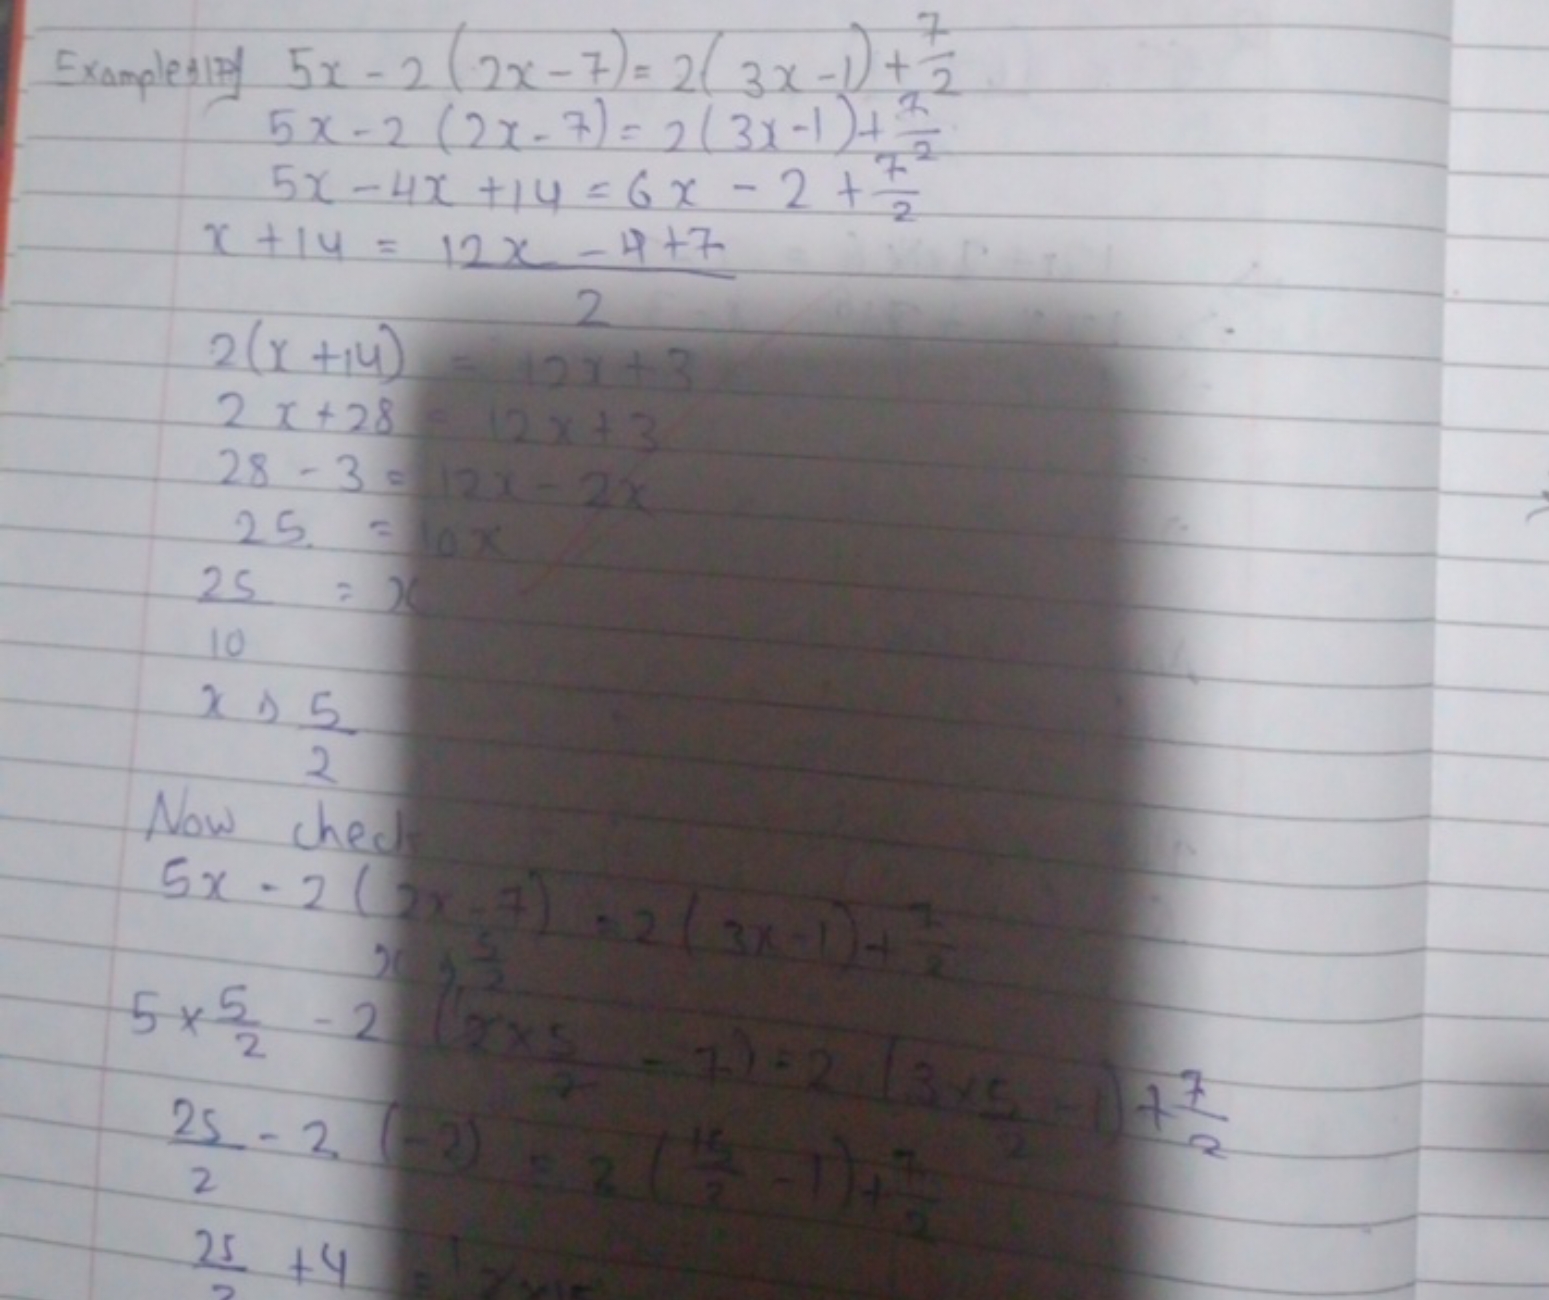 Example 17 5x - 2 (2x - 7) = 2(3x - 1) + 7/2
5x - 2 (2x - 7) = 2(3x - 1) + 7/2
5x - 4x + 14 = 6x - 2 + 7/2
x + 14 = 12x - 4 + 7
2
2(x + 14) = 12x + 3
2x + 28 = 12x + 3
28 - 3 = 12x - 2x
25 = 10x
25 = x
10
x = 5
2
Now check
5x - 2 (2x - 7) = 2(3x - 1) + 7/2
x = 5/2
5 × 5/2 - 2 (2 × 5/2 - 7) = 2 (3 × 5/2 - 1) + 7/2
25/2 - 2 (-2) = 2 (15/2 - 1) + 7/2
25/2 + 4 =